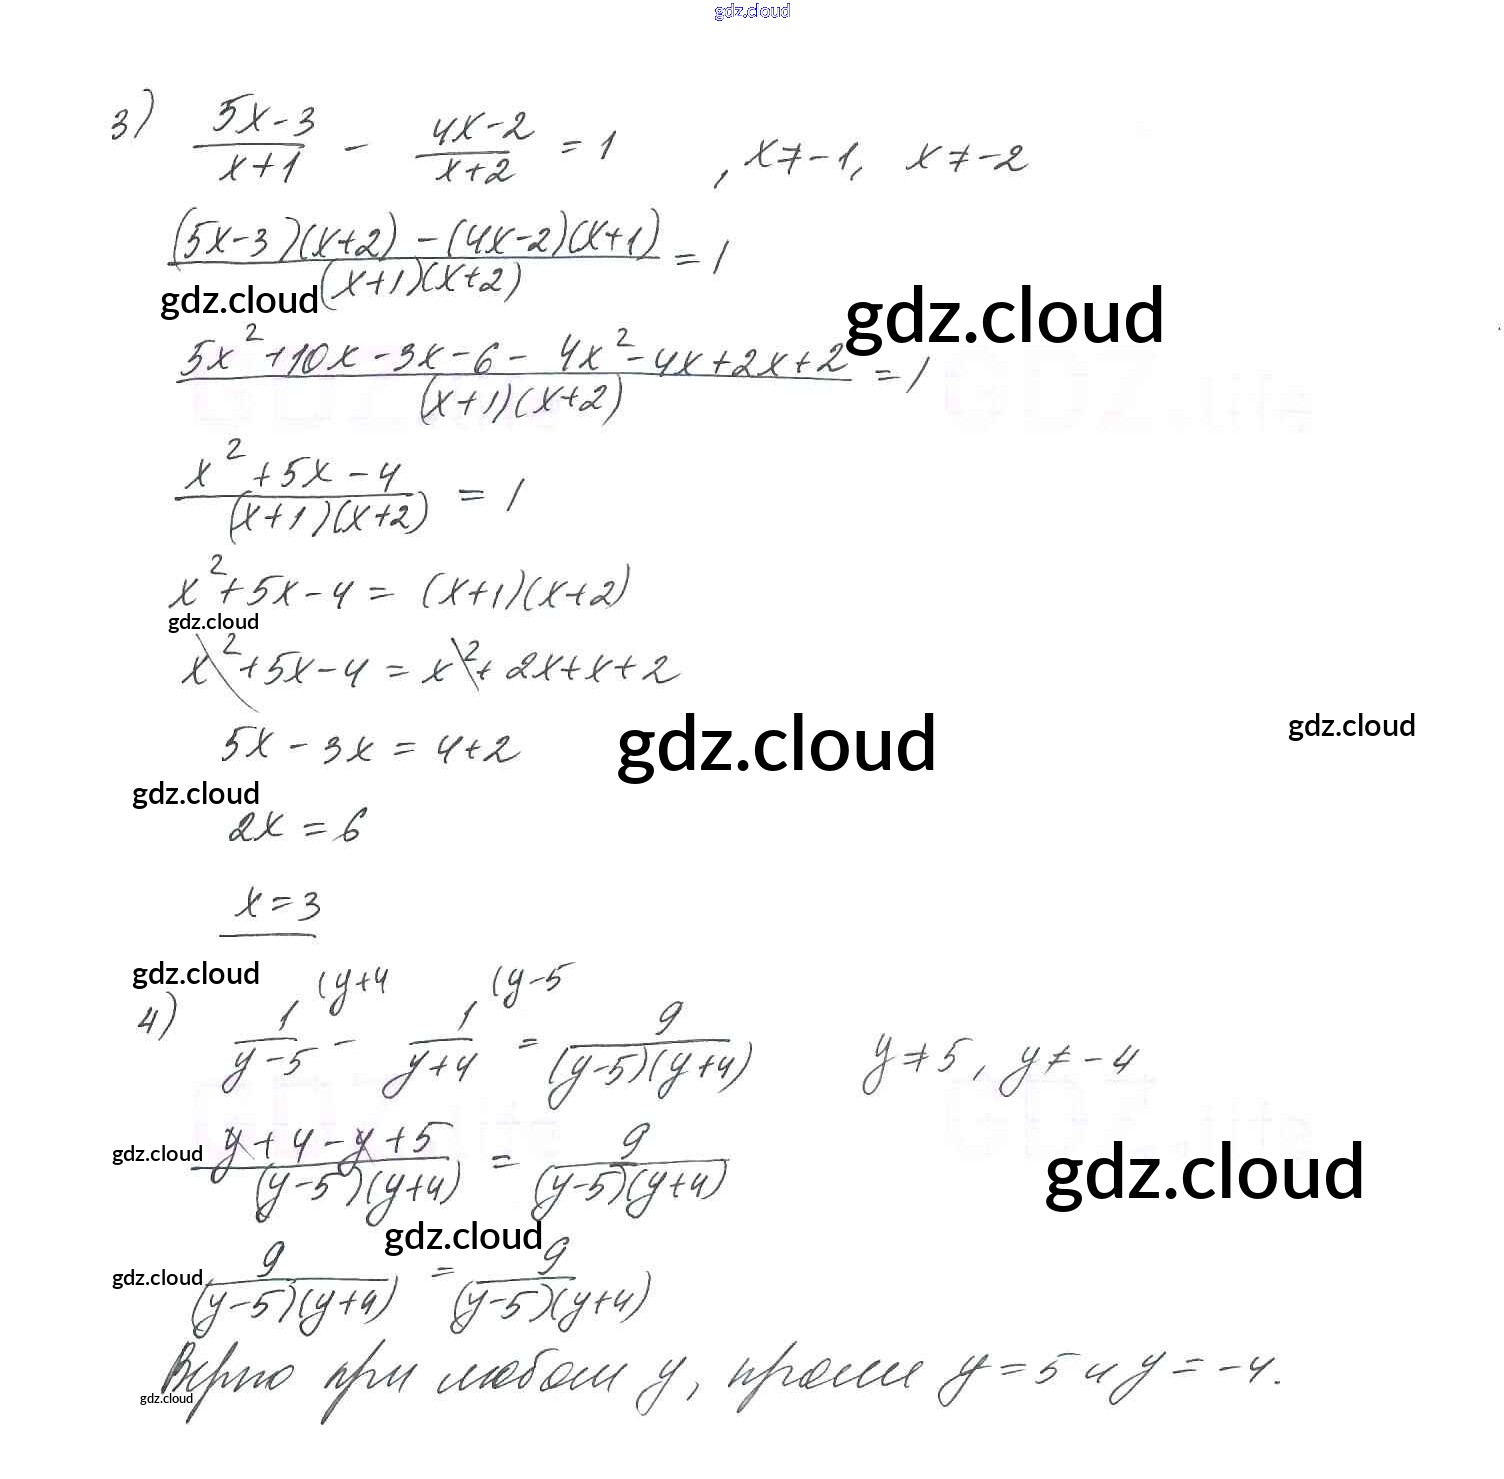 gdz.cloud
3) (5x-3)/(x+1) - (4x-2)/(x+2) = 1 , x≠-1, x≠-2
((5x-3)(x+2) - (4x-2)(x+1))/((x+1)(x+2)) = 1
gdz.cloud
gdz.cloud
(5x²+10x-3x-6-4x²-4x+2x+2)/((x+1)(x+2)) = 1
(x²+5x-4)/((x+1)(x+2)) = 1
x²+5x-4 = (x+1)(x+2)
gdz.cloud
x²+5x-4 = x²+2x+x+2
5x-3x = 4+2
gdz.cloud
gdz.cloud
gdz.cloud
2x = 6
x = 3
gdz.cloud
4) 1/(y-5) (y+4 - 1/(y+4) (y-5 = 9/((y-5)(y+4)) y≠5, y≠-4
gdz.cloud
(y+4-y+5)/((y-5)(y+4)) = 9/((y-5)(y+4))
gdz.cloud
gdz.cloud
gdz.cloud
9/((y-5)(y+4)) = 9/((y-5)(y+4))
Верно при любом y, кроме y=5 и y=-4.
gdz.cloud